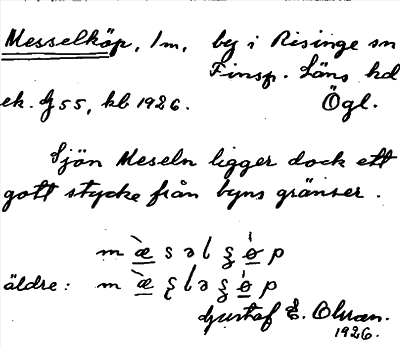 Messelköp, 1 m, by i Risinge sn
Finsp. Läns hd
ek. bl 55, kbl 1926. Ögl.
Sjön Meseln ligger dock ett
gott stycke från byns gränser.
m æ̀ s ə l ʂ ø̍ p
äldre: m æ̀ ʂ l ə ʂ ø̍ p
Gustaf E. Ohran.
1926.